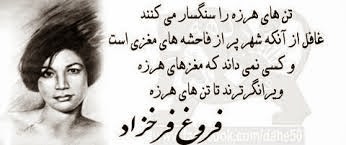 تن های هرزه را سنگسار می کنند
غافل از آنکه شهر پر از فاحشه های مغزی است
و کسی نمی داند که مغزهای هرزه
ویرانگرترند تا تن های هرزه
فروغ فرخزاد
facebook.com/dahe50